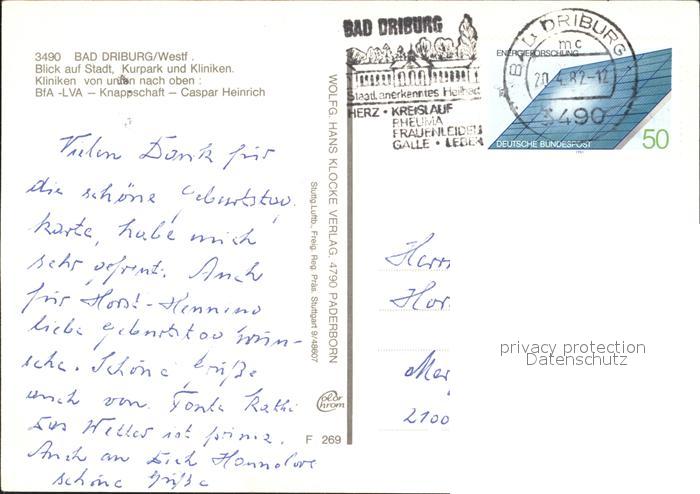 3490 BAD DRIBURG/Westf.
Blick auf Stadt, Kurpark und Kliniken.
Kliniken von unten nach oben :
BfA -LVA – Knappschaft – Caspar Heinrich
Vielen Dank für
die schöne Geburtstag
karte, habe mich
sehr gefreut. Auch
für Horst-Henning
liebe Geburtstag wün-
sche. Schöne Grüße
auch von Tante Kathi
Das Wetter ist prima.
Auch an Dich Hannelore
schöne Grüße
WOLFG. HANS KLOCKE VERLAG, 4790 PADERBORN
Stuttg. Luftb., Freig. Reg. Präs. Stuttgart 9/48607
color chrom
F 269
BAD DRIBURG
Staatl. anerkanntes Heilbad
HERZ • KREISLAUF
RHEUMA
FRAUENLEIDEN
GALLE • LEBER
BAD DRIBURG
mc
20.4.82-12
3490
ENERGIEFORSCHUNG
DEUTSCHE BUNDESPOST
50
1981
Herr
Hor
2100
privacy protection
Datenschutz